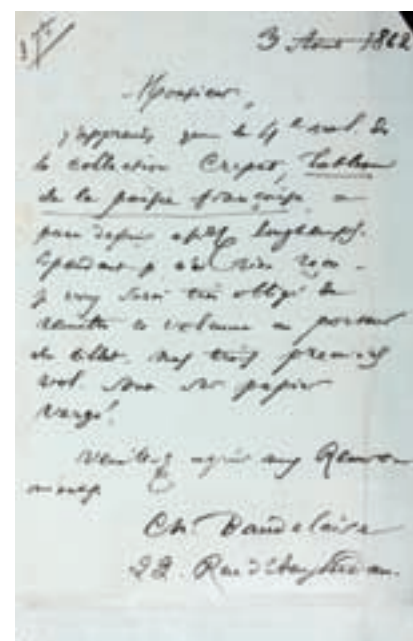 3 Aout 1862
Monsieur,
j'apprends que le 4e vol. de
la collection Crépet, Tableau
de la poésie française, a
paru depuis assez longtemps.
Cependant je n'ai rien reçu.
je vous serai très obligé de
remettre ce volume au porteur
du billet. mes trois premiers
vol. sont sur papier
vergé.
veuillez agréer mes
Ch. Baudelaire
22. Rue d'Amsterdam.